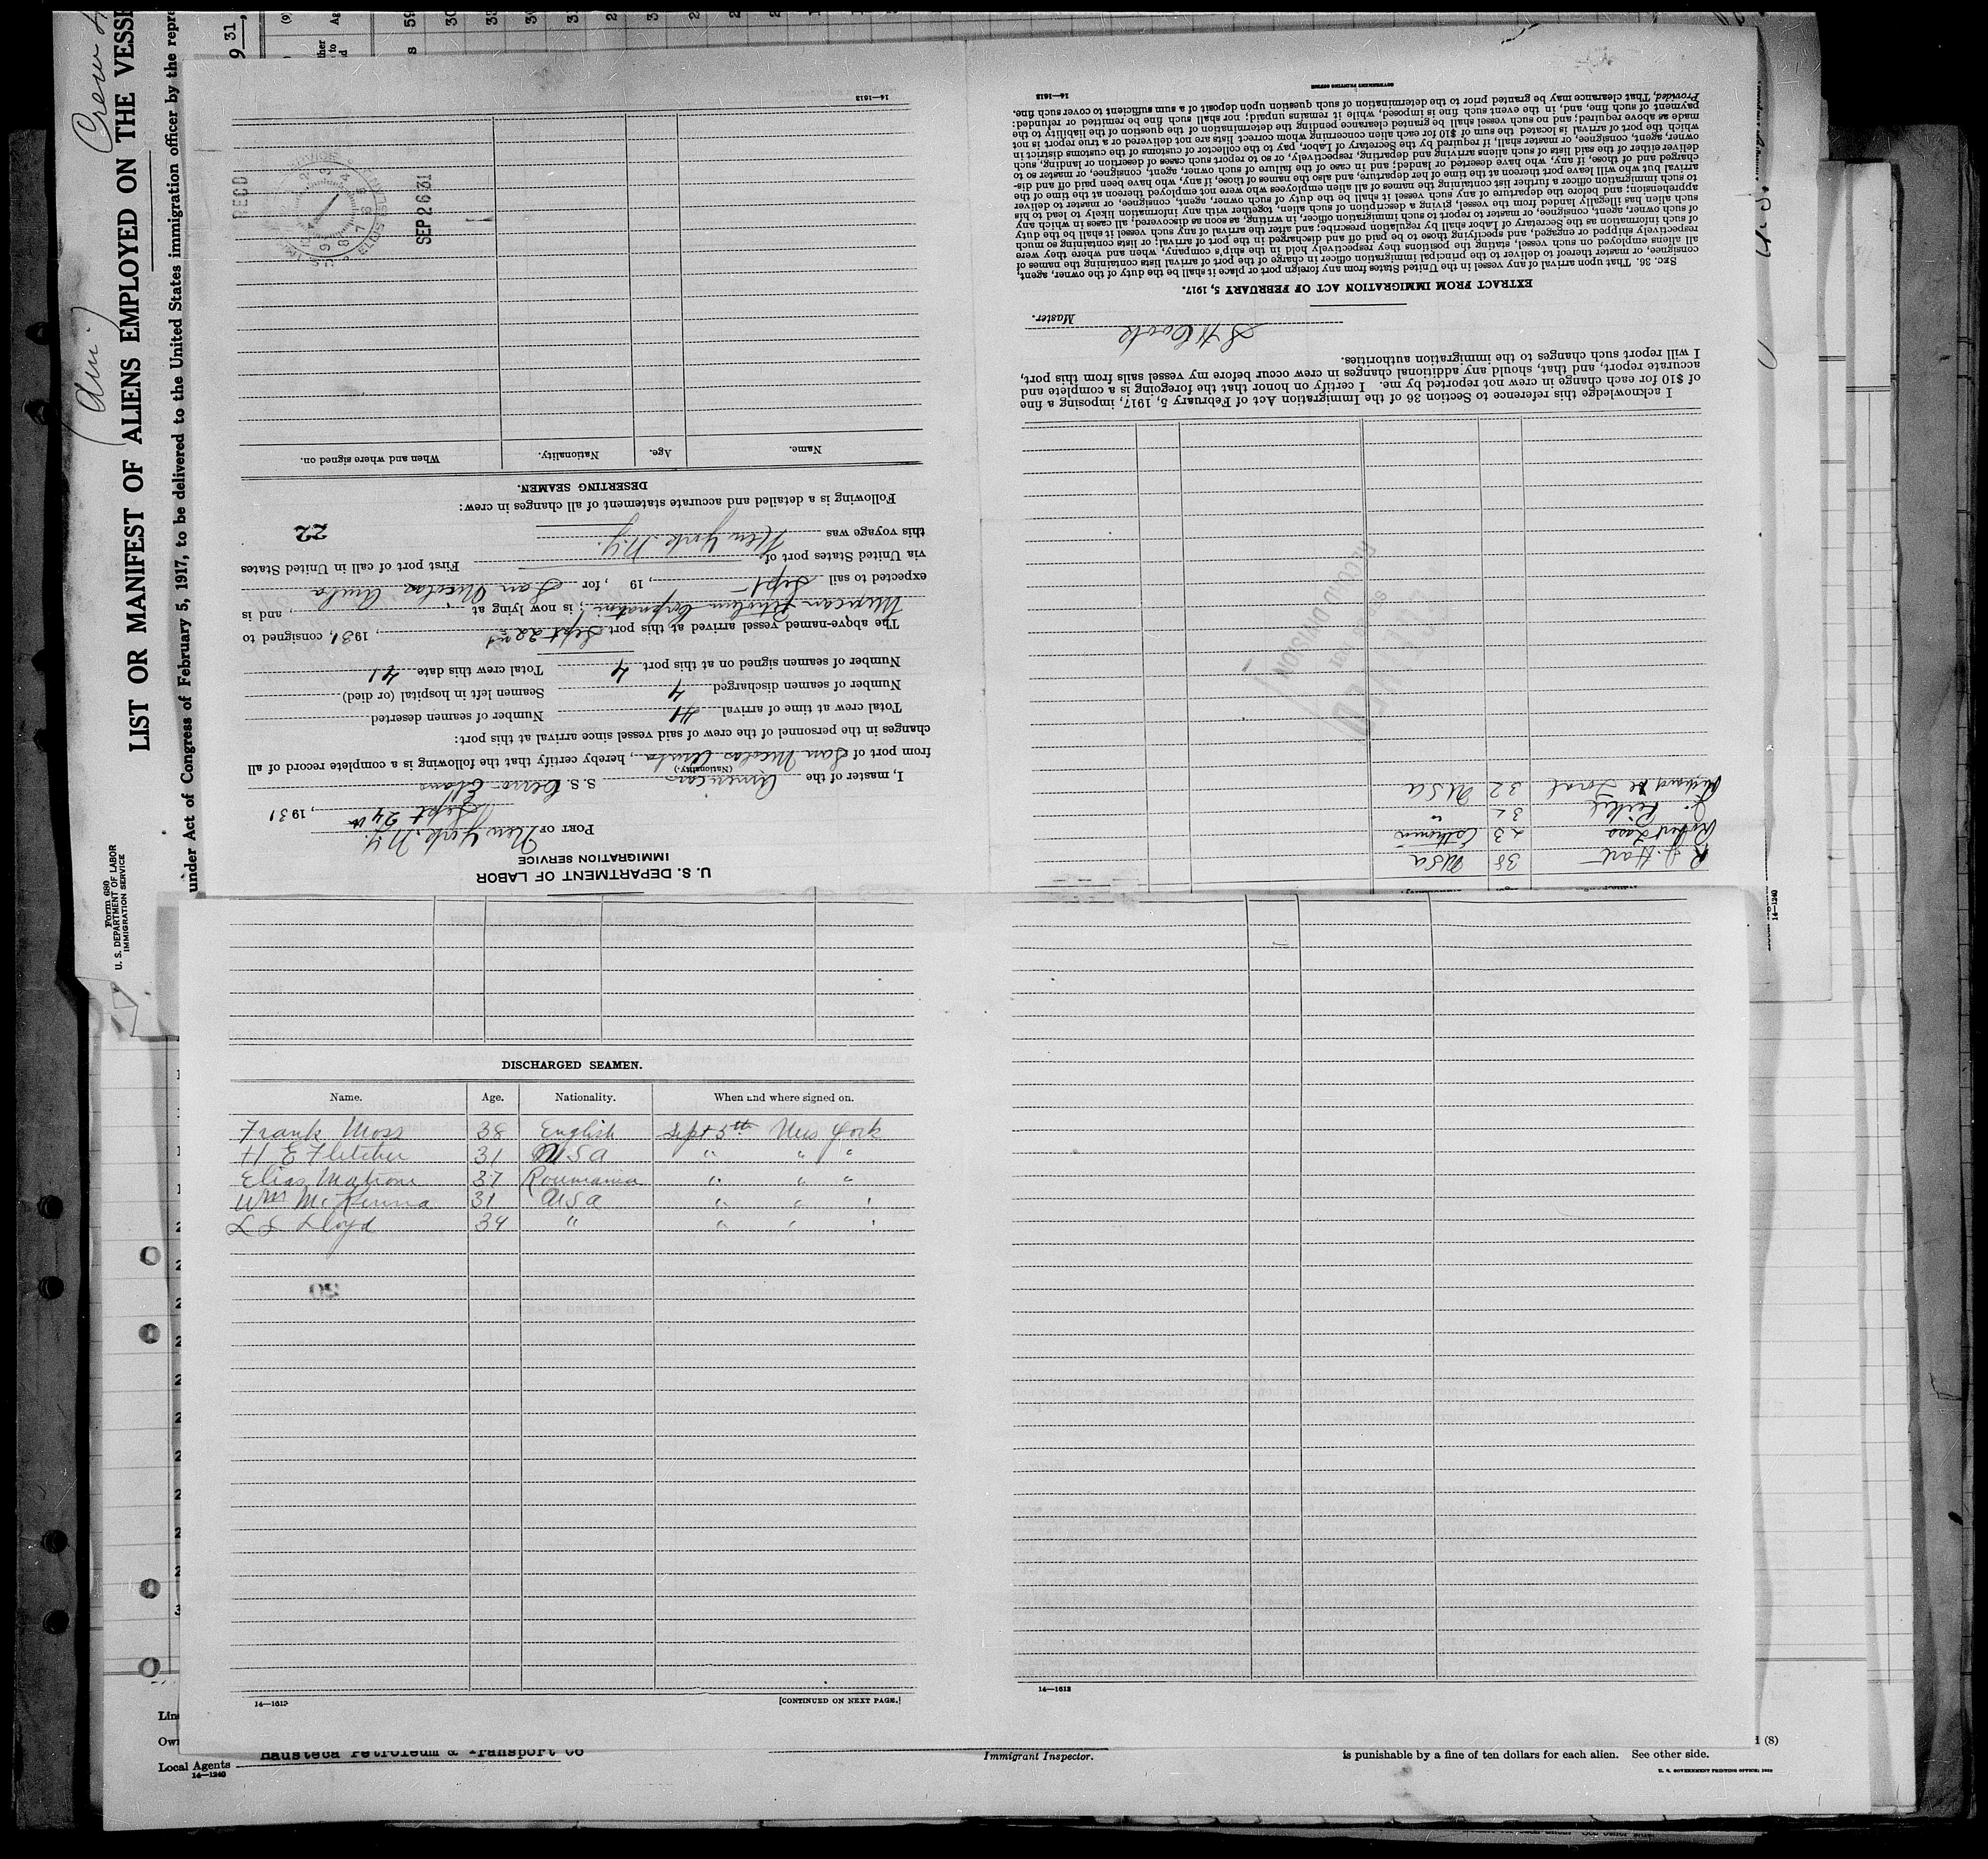 LIST OR MANIFEST OF ALIENS EMPLOYED ON THE VESSE
under Act of Congress of February 5, 1917, to be delivered to the United States immigration officer by the repre
Form 680
U. S. DEPARTMENT OF LABOR
IMMIGRATION SERVICE
U. S. DEPARTMENT OF LABOR
IMMIGRATION SERVICE
PORT OF New York N.Y.
Sept 24th, 1931
I, master of the American S.S. Cerro Ebano
(Nationality.)
from port of San Nicolas Aruba, hereby certify that the following is a complete record of all
changes in the personnel of the crew of said vessel since arrival at this port:
Total crew at time of arrival 41 Number of seamen deserted
Number of seamen discharged 4 Seamen left in hospital (or died)
Number of seamen signed on at this port 4 Total crew this date 41
The above-named vessel arrived at this port Sept 22nd, 1931, consigned to
Mexican Petroleum Corporation; is now lying at , and is
expected to sail Sept , 19 , for San Nicolas Aruba
via United States port of First port of call in United States
this voyage was New York N.Y.
22
Following is a detailed and accurate statement of all changes in crew:
DESERTING SEAMEN.
Name. Age. Nationality. When and where signed on.
REC'D
SEP 26 31
14—1613
R J Hart 38 USA
Robert Lass 23 Esthonia
32 "
32 USA
RECORD DIVISION
I acknowledge this reference to Section 36 of the Immigration Act of February 5, 1917, imposing a fine
of $10 for each change in crew not reported by me. I certify on honor that the foregoing is a complete and
accurate report, and that, should any additional changes in crew occur before my vessel sails from this port,
I will report such changes to the immigration authorities.
S H Cook
Master.
EXTRACT FROM IMMIGRATION ACT OF FEBRUARY 5, 1917.
SEC. 36. That upon arrival of any vessel in the United States from any foreign port or place it shall be the duty of the owner, agent,
consignee, or master thereof to deliver to the principal immigration officer in charge of the port of arrival lists containing the names of
all aliens employed on such vessel, stating the positions they respectively hold in the ship's company, when and where they were
respectively shipped or engaged, and specifying those to be paid off and discharged in the port of arrival; or lists containing so much
of such information as the Secretary of Labor shall by regulation prescribe; and after the arrival of any such vessel it shall be the duty
of such owner, agent, consignee, or master to report to such immigration officer, in writing, as soon as discovered, all cases in which any
such alien has illegally landed from the vessel, giving a description of such alien, together with any information likely to lead to his
apprehension; and before the departure of any such vessel it shall be the duty of such owner, agent, consignee, or master to deliver
to such immigration officer a further list containing the names of all alien employees who were not employed thereon at the time of the
arrival but who will leave port thereon at the time of her departure, and also the names of those, if any, who have been paid off and dis-
charged and of those, if any, who have deserted or landed; and in case of the failure of such owner, agent, consignee, or master so to
deliver either of the said lists of such aliens arriving and departing, respectively, or so to report such cases of desertion or landing, such
owner, agent, consignee, or master shall, if required by the Secretary of Labor, pay to the collector of customs of the customs district in
which the port of arrival is located the sum of $10 for each alien concerning whom correct lists are not delivered or a true report is not
made as above required; and no such vessel shall be granted clearance pending the determination of the question of the liability to the
payment of such fine, and, in the event such fine is imposed, while it remains unpaid; nor shall such fine be remitted or refunded:
Provided, That clearance may be granted prior to the determination of such question upon deposit of a sum sufficient to cover such fine.
14—1613
GOVERNMENT PRINTING OFFICE
DISCHARGED SEAMEN.
Name. Age. Nationality. When and where signed on.
Frank Moss 38 English Sept 5th New York
H E Fletcher 31 USA " " "
Elias Matrone 37 Roumania " " "
Wm McKenna 31 USA " " "
L S Lloyd 34 " " " "
14—1613
[CONTINUED ON NEXT PAGE.]
14—1613
Local Agents Hausteca Petroleum & Transport Co
14—1240
Immigrant Inspector.
is punishable by a fine of ten dollars for each alien. See other side.
U. S. GOVERNMENT PRINTING OFFICE